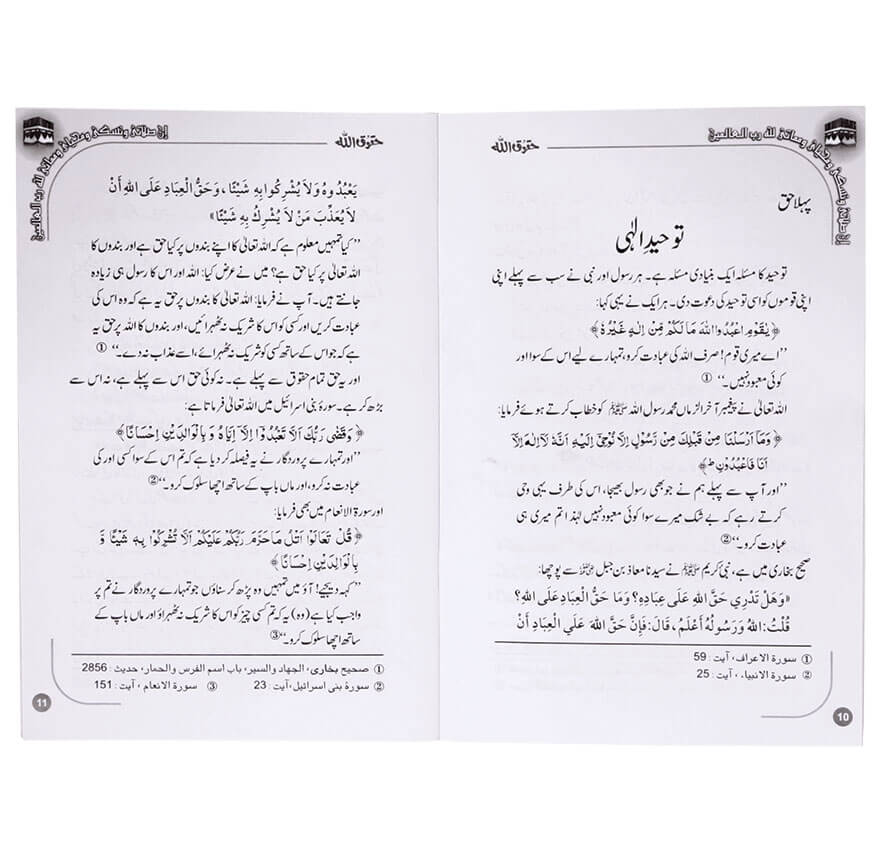 ان صلاتی ونسکی ومحیای ومماتی للہ رب العالمین
حقوق اللہ
پہلا حق
توحیدِ الٰہی
توحید کا مسئلہ ایک بنیادی مسئلہ ہے۔ ہر رسول اور نبی نے سب سے پہلے اپنی
اپنی قوموں کو اسی توحید کی دعوت دی۔ ہر ایک نے یہی کہا:
﴿يٰقَوْمِ اعْبُدُوا اللّٰهَ مَا لَكُمْ مِّنْ اِلٰهٍ غَيْرُهٗ﴾
’’اے میری قوم! صرف اللہ کی عبادت کرو، تمہارے لیے اس کے سوا اور
کوئی معبود نہیں۔‘‘ ①
اللہ تعالیٰ نے پیغمبر آخر الزماں محمد رسول اللہ ﷺ کو خطاب کرتے ہوئے فرمایا:
﴿وَمَاۤ اَرْسَلْنَا مِنْ قَبْلِكَ مِنْ رَّسُوْلٍ اِلَّا نُوْحِيْۤ اِلَيْهِ اَنَّهٗ لَاۤ اِلٰهَ اِلَّاۤ
اَنَا فَاعْبُدُوْنِ﴾
’’اور آپ سے پہلے ہم نے جو بھی رسول بھیجا، اس کی طرف یہی وحی
کرتے رہے کہ بے شک میرے سوا کوئی معبود نہیں لہٰذا تم میری ہی
عبادت کرو۔‘‘ ②
صحیح بخاری میں ہے، نبی کریم ﷺ نے سیدنا معاذ بن جبل ؓ سے پوچھا:
«وَهَلْ تَدْرِي حَقَّ اللهِ عَلَى عِبَادِهِ؟ وَمَا حَقُّ الْعِبَادِ عَلَى اللهِ؟
قُلْتُ: اللهُ وَرَسُولُهُ أَعْلَمُ، قَالَ: فَإِنَّ حَقَّ اللهِ عَلَي الْعِبَادِ أَنْ
① سورۃ الاعراف، آیت : 59
② سورۃ الانبیاء، آیت : 25
10
ان صلاتی ونسکی ومحیای ومماتی للہ رب العالمین
حقوق اللہ
يَعْبُدُوهُ وَلَا يُشْرِكُوا بِهِ شَيْئًا، وَحَقُّ الْعِبَادِ عَلَى اللهِ أَنْ
لَا يُعَذِّبَ مَنْ لَا يُشْرِكُ بِهِ شَيْئًا»
’’کیا تمہیں معلوم ہے کہ اللہ تعالیٰ کا اپنے بندوں پر کیا حق ہے اور بندوں کا
اللہ تعالیٰ پر کیا حق ہے؟ میں نے عرض کیا: اللہ اور اس کا رسول ہی زیادہ
جانتے ہیں۔ آپ نے فرمایا: اللہ تعالیٰ کا بندوں پر حق یہ ہے کہ وہ اس کی
عبادت کریں اور کسی کو اس کا شریک نہ ٹھہرائیں، اور بندوں کا اللہ پر حق یہ
ہے کہ جو اس کے ساتھ کسی کو شریک نہ ٹھہرائے، اسے عذاب نہ دے۔‘‘ ①
اور یہ حق تمام حقوق سے پہلے ہے۔ نہ کوئی حق اس سے پہلے ہے، نہ اس سے
بڑھ کر ہے۔ سورۂ بنی اسرائیل میں اللہ تعالیٰ فرماتا ہے:
﴿وَقَضٰى رَبُّكَ اَلَّا تَعْبُدُوْۤا اِلَّاۤ اِيَّاهُ وَ بِالْوَالِدَيْنِ اِحْسَانًا﴾
’’اور تمہارے پروردگار نے یہ فیصلہ کر دیا ہے کہ تم اس کے سوا کسی اور کی
عبادت نہ کرو، اور ماں باپ کے ساتھ اچھا سلوک کرو۔‘‘②
اور سورۃ الانعام میں بھی فرمایا:
﴿قُلْ تَعَالَوْا اَتْلُ مَا حَرَّمَ رَبُّكُمْ عَلَيْكُمْ اَلَّا تُشْرِكُوْا بِهٖ شَيْـًٔا وَّ
بِالْوَالِدَيْنِ اِحْسَانًا﴾
’’کہہ دیجیے! آؤ میں تمہیں وہ پڑھ کر سناؤں جو تمہارے پروردگار نے تم پر
واجب کیا ہے (وہ) یہ کہ تم کسی چیز کو اس کا شریک نہ ٹھہراؤ اور ماں باپ کے
ساتھ اچھا سلوک کرو۔‘‘③
① صحیح بخاری، الجهاد والسیر، باب اسم الفرس والحمار، حدیث : 2856
② سورۂ بنی اسرائیل، آیت : 23 ③ سورۃ الانعام، آیت : 151
11